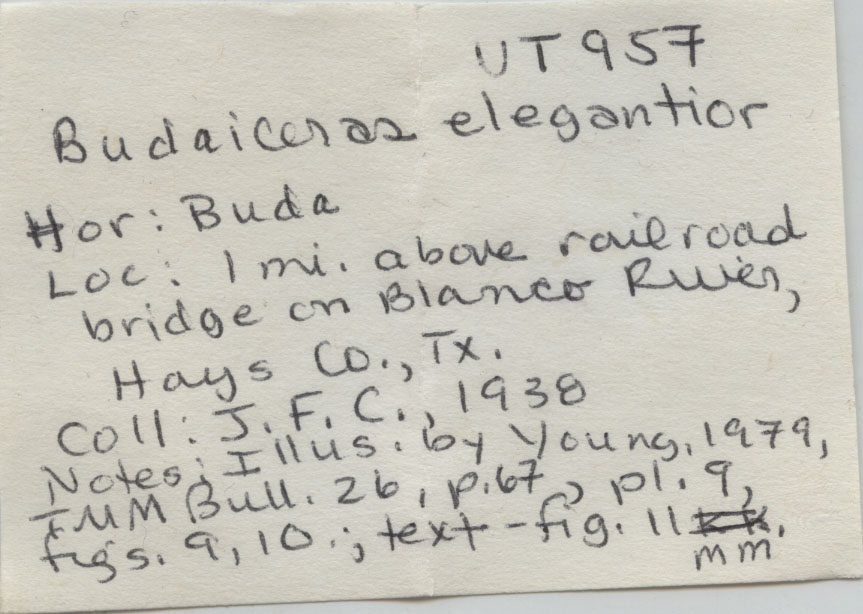 UT 957
Budaiceras elegantior
Hor: Buda
Loc: 1 mi. above railroad
bridge on Blanco River,
Hays Co., Tx.
Coll: J. F. C., 1938
Notes: Illus. by Young, 1979,
TMM Bull. 26, p. 67, pl. 9,
figs. 9, 10.; text-fig. 11
mm.